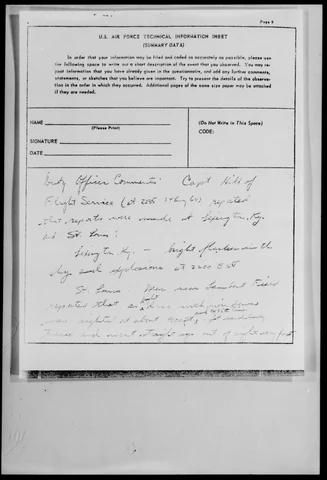 Page 5
U.S. AIR FORCE TECHNICAL INFORMATION SHEET
(SUMMARY DATA)
In order that your information may be filed and coded as accurately as possible, please use
the following space to write out a short description of the event that you observed. You may re-
peat information that you have already given in the questionnaire, and add any further comments,
statements, or sketches that you believe are important. Try to present the details of the observa-
tion in the order in which they occurred. Additional pages of the same size paper may be attached
if they are needed.
NAME
(Please Print)
(Do Not Write in This Space)
CODE:
SIGNATURE
DATE
Duty Officer Comments: Capt Hill of
Flight Service (at 2235 reported
that reports were made at Lexington, Ky.
and St. Louis:
Lexington Ky. — bright in the
sky and explosions at 2200 EST
St. Louis: Men near Lambert Field
reported that
was sighted at about
and went straight up out of sight very fast